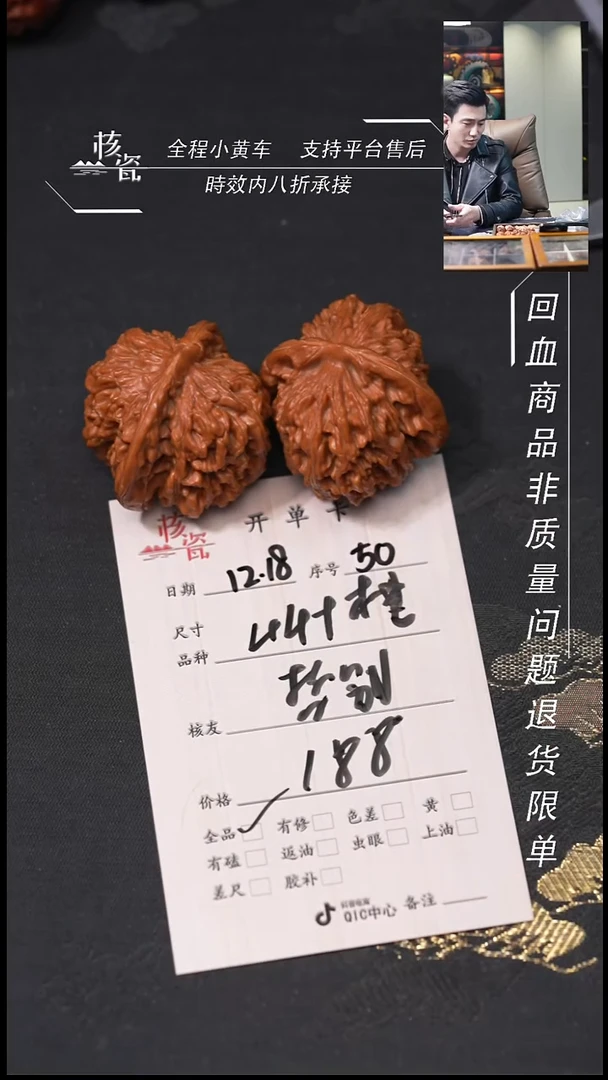 核瓷
全程小黄车 支持平台售后
時效内八折承接
回血商品非质量问题退货限单
核瓷
开单卡
日期 12.18 序号 50
尺寸 44+
品种
核友
价格 188
全品 有修 色差 黄
有磕 返油 虫眼 上油
差尺 胶补
抖音电商
QIC中心 备注